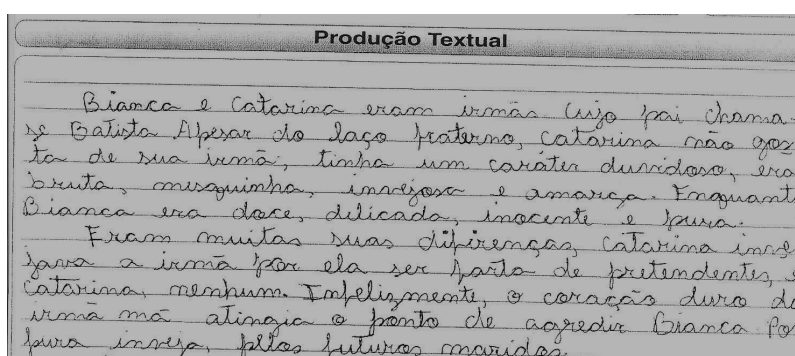 Produção Textual
Bianca e Catarina eram irmãs cujo pai chama-
se Batista Apesar do laço fraterno, catarina não gos
ta de sua irmã, tinha um caráter duvidoso, era
bruta, mesquinha, invejosa e amarga. Enquant
Bianca era doce, delicada, inocente e pura.
Eram muitas suas difirenças, catarina inve
java a irmã por ela ser farta de pretendentes, e
catarina, nenhum. Infelizmente, o coração duro da
irmã má atingia o ponto de agredir Bianca Po
pura inveja, pelos futuros maridos.